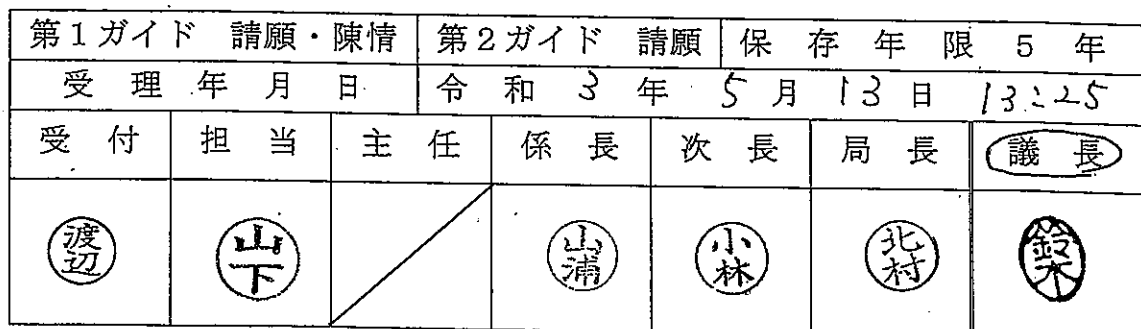 第1ガイド 請願・陳情 第2ガイド 請願 保存年限5年
受理年月日 令和3年5月13日 13:25
受付 担当 主任 係長 次長 局長 議長
渡辺 山下 山浦 小林 北村 鈴木